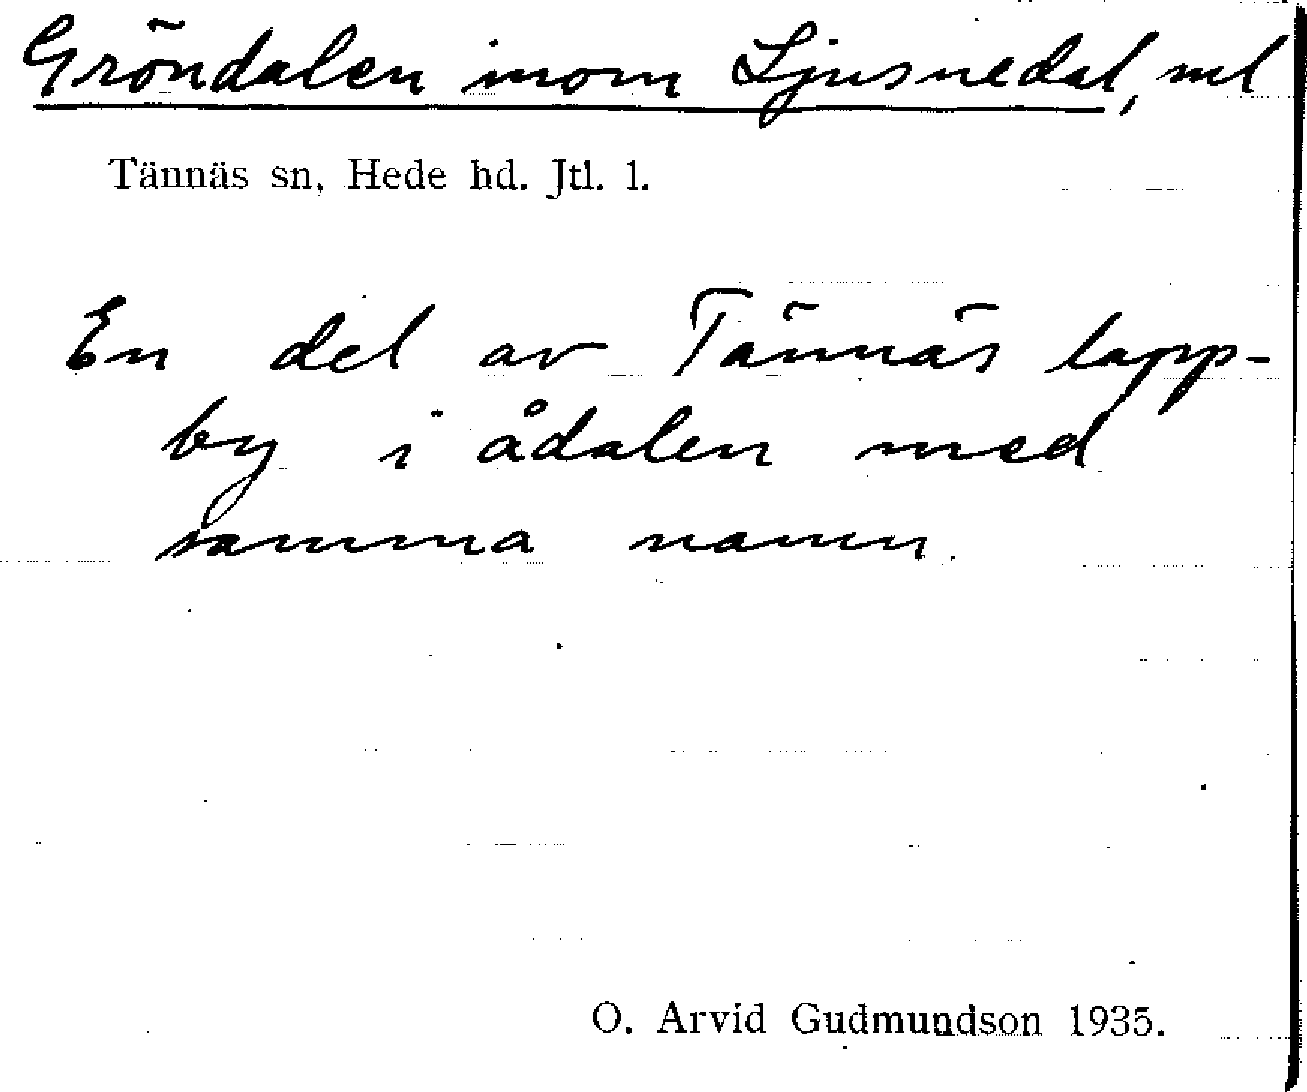 Gröndalen inom Ljusnedal, nl
Tännäs sn, Hede hd. Jtl. l.
En del av Tännäs lapp-
by i ådalen med
samma namn.
O. Arvid Gudmundson 1935.